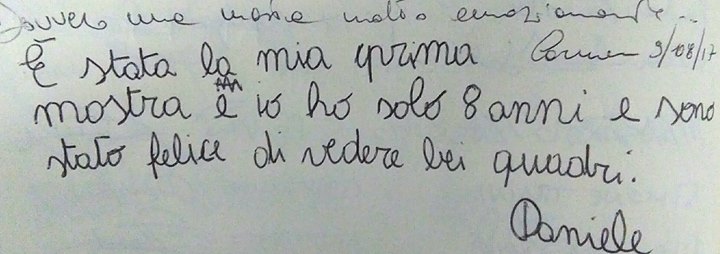 Davvero una mostra molto emozionante...
È stata la mia prima
Carmen 9/08/17
mostra e io ho solo 8 anni e sono
stato felice di vedere bei quadri.
Daniele